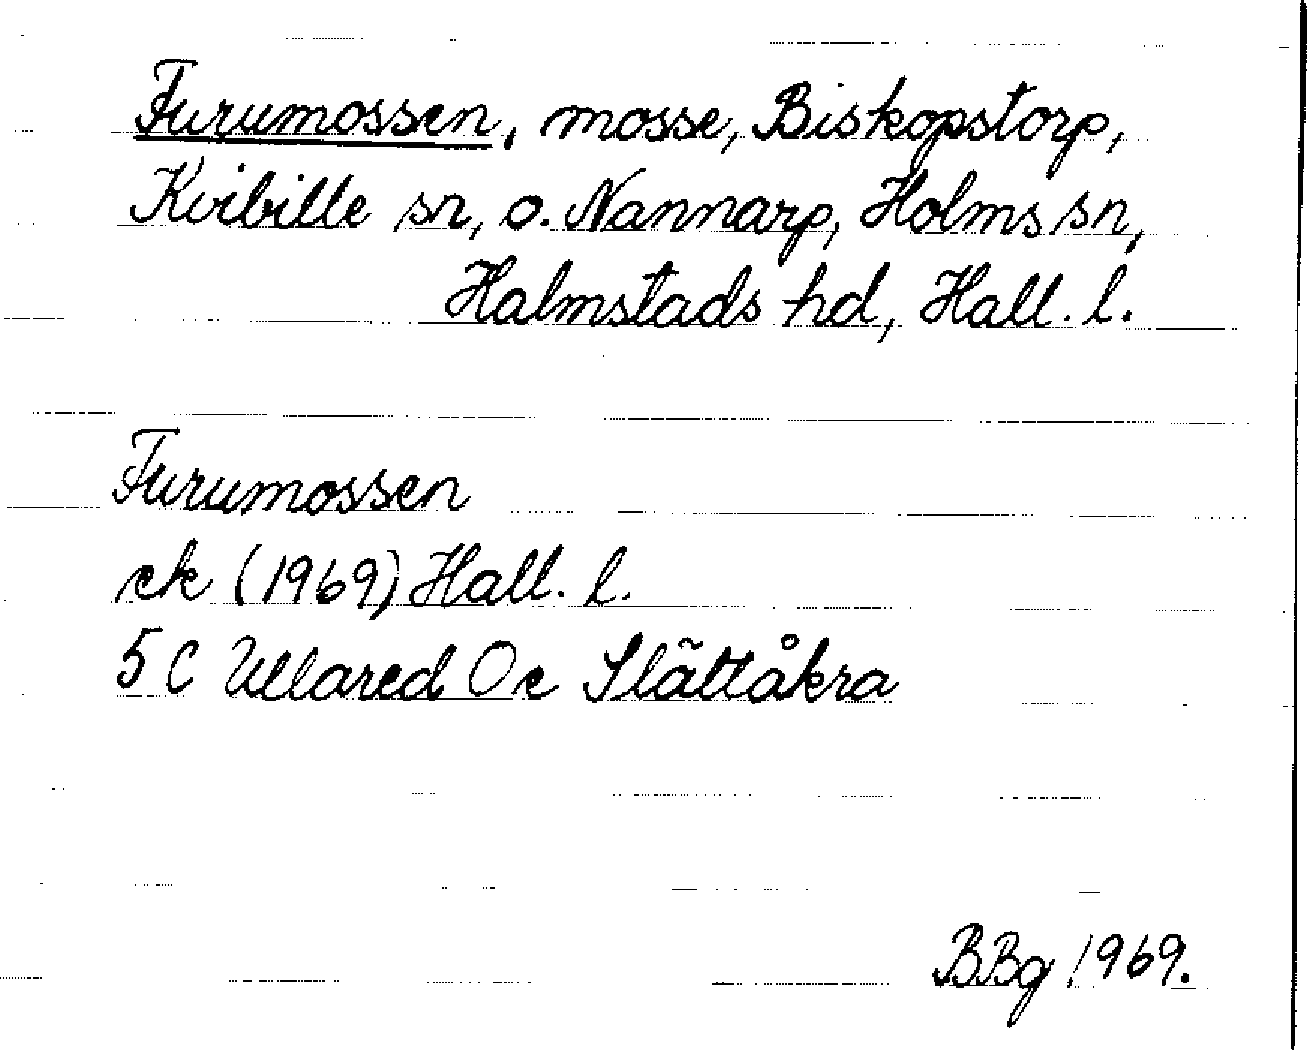 Furumossen, mosse, Biskopstorp,
Kvibille sn, o. Nannarp, Holms sn,
Halmstads hd, Hall. l.
Furumossen
ek (1969) Hall. l.
5 C Ullared 0 e Slättåkra
BBg 1969.